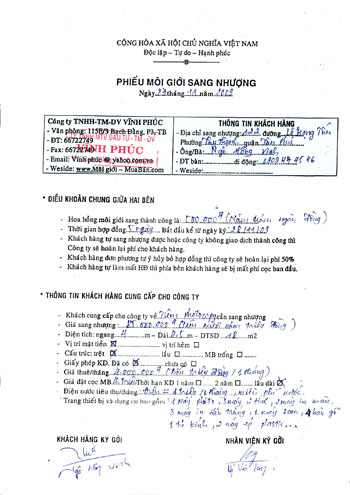 CỘNG HÒA XÃ HỘI CHỦ NGHĨA VIỆT NAM
Độc lập – Tự do – Hạnh phúc
PHIẾU MÔI GIỚI SANG NHƯỢNG
Ngày 27 tháng 11 năm 2009
Công ty TNHH-TM-DV VĨNH PHÚC
- Văn phòng: 1158/3 Bạch Đằng, P3, TB
- ĐT: 66722749
- Fax: 66722749
VĨNH PHÚC
- Email: Vĩnh phúc @ yahoo.com.vn
- Weside: www.Môi giới – MuaBán.com
THÔNG TIN KHÁCH HÀNG
- Địa chỉ sang nhượng: 122 đường Lê Trọng Tấn
Phường Tây Thạnh, quận Tân Phú
- Ông/Bà: Ngô Hồng Vinh
- ĐT bàn: di động: 0909 47 95 46
- Weside:
* ĐIỀU KHOẢN CHUNG GIỮA HAI BÊN
- Hoa hồng môi giới sang thành công là: 500.000đ (Năm trăm ngàn đồng)
- Thời gian hợp đồng 5 ngày. Bắt đầu kể từ ngày ký 28/11/09
- Khách hàng tự sang nhượng được hoặc công ty không giao dịch thành công thì
Công ty sẽ không hoàn lại phí
- Khách hàng đơn phương tự ý hủy bỏ hợp đồng thì công ty sẽ hoàn lại phí 50%
- Khách hàng tự làm mất HĐ thì phía bên khách hàng sẽ bị mất phí cọc ban đầu.
* THÔNG TIN KHÁCH HÀNG CUNG CẤP CHO CÔNG TY
- Khách cung cấp cho công ty về Tiệm photocopy cần sang nhượng
- Giá sang nhượng: 85.000.000đ (Tám mươi năm triệu đồng)
- Diện tích: ngang 4 m – Dài 4.5 m – DTSD 18 m2
- Vị trí mặt tiền vị trí hẻm
- Cấu trúc: trệt lầu MB trống
- Giấy phép KD. Đã có chưa có
- Giá thuê/tháng: 4.000.000đ (Bốn triệu đồng / 1 tháng)
- Giá đặt cọc MB Thời hạn KD 1 năm 2 năm lâu dài
- Điện nước tiêu thụ/tháng: triệu 1 tháng, miễn phí nước.
- Trang thiết bị và dụng cụ bao gồm: 1 máy photo, 3 máy vi tính, 2 máy in màu,
3 máy in đen trắng, 1 máy scan, 4 bàn gỗ
1 tủ kính, 2 máy ép plastic...
KHÁCH HÀNG KÝ GỞI
NHÂN VIÊN KÝ GỞI
Ngô Hồng Vinh